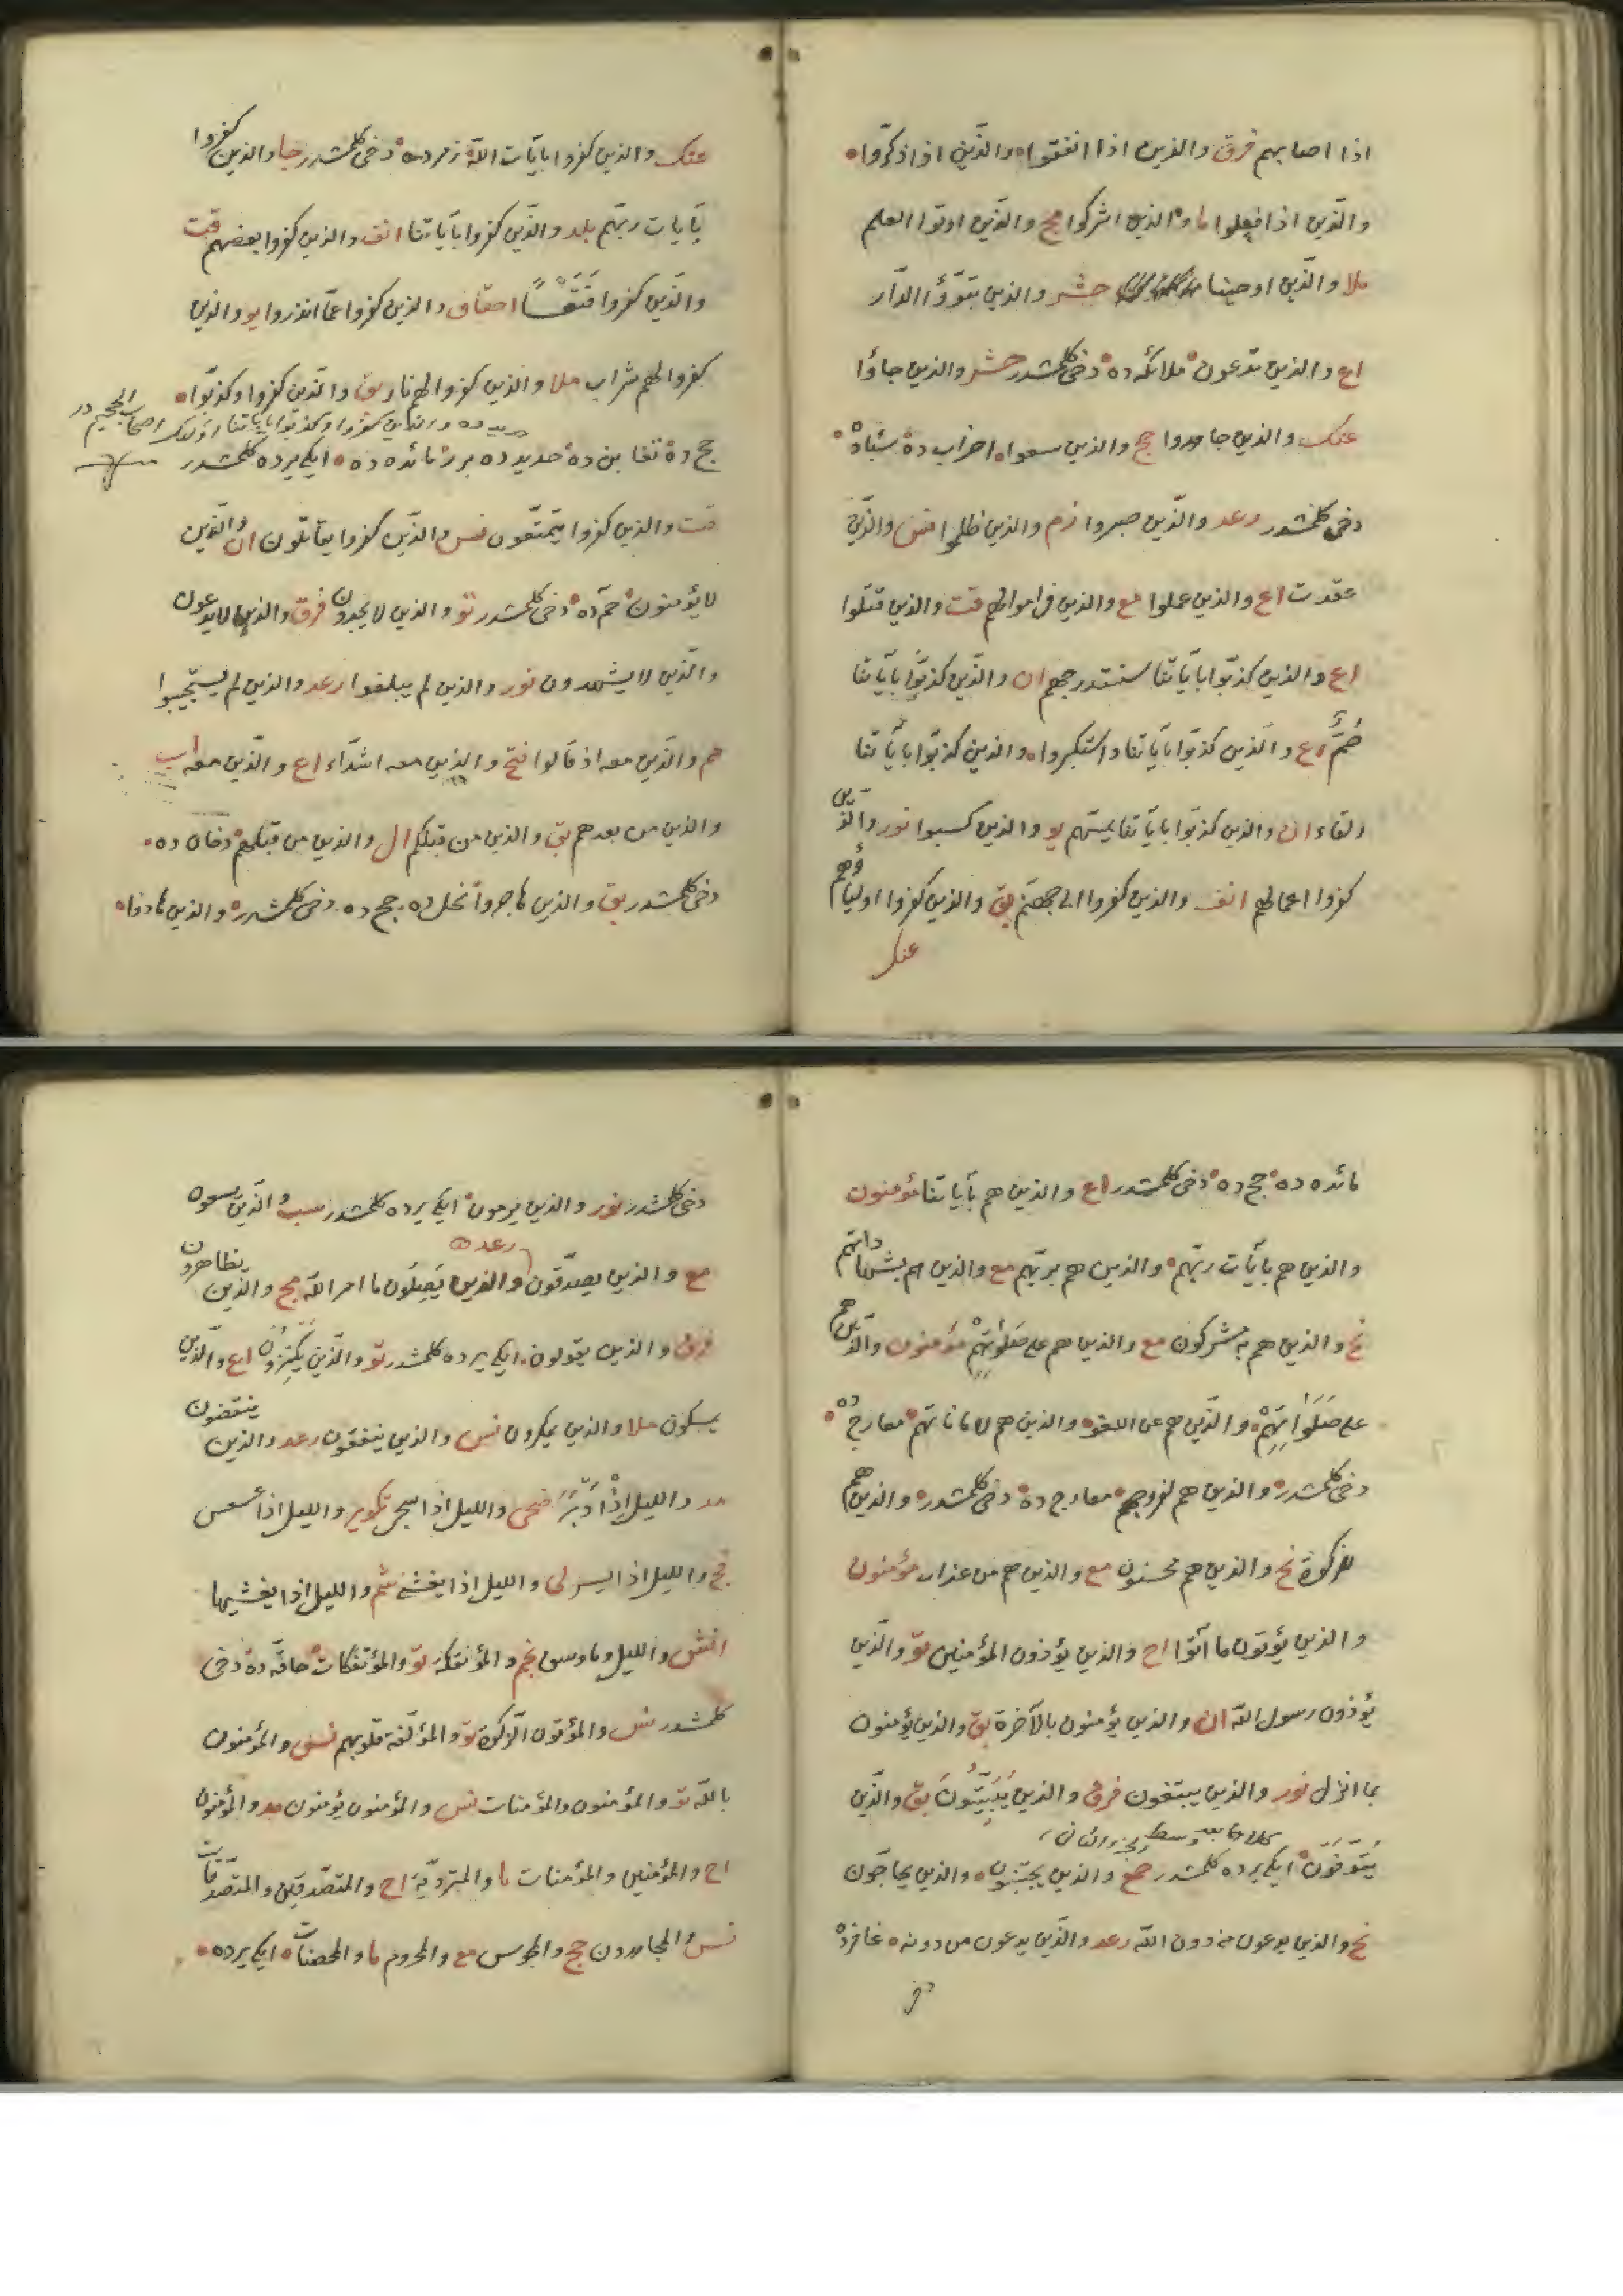 اذا اصابهم فرق والذين اذا انفقوا والذين اذا ذكروا
والذين اذا فعلوا ما والذين اشركوا مج والذين اوتوا العلم
ملا والذين اوحينا حشر والذين تبوؤا الدار
اع والذين تدعون ملائكه ده دخى كلمشدر حشر والذين جاؤا
عنك والذين جاهدوا حج والذين سعوا احزاب ده
دخى كلمشدر رعد والذين صبروا زم والذين ظلموا نس والذين
عقدت اع والذين عملوا مع والذين فى اموالهم قت والذين قتلوا
اع والذين كذبوا باياتنا سنستدرجهم ان والذين كذبوا باياتنا
صم اع والذين كذبوا باياتنا واستكبروا والذين كذبوا باياتنا
ولقاء ان والذين كذبوا باياتنا يمسهم يو والذين كسبوا نور والذين
كفروا اعمالهم انف والذين كفروا الى جهنم بق والذين كفروا اولياؤهم
عنك
عنك والذين كفروا بايات الله زمر ده دخى كلمشدر جا والذين كفروا
بايات ربهم بلد والذين كفروا باياتنا انف والذين كفروا بعضهم قت
والذين كفروا فتعسا احقاف والذين كفروا عما انذروا يو والذين
كفروا لهم شراب ملا والذين كفروا لهم نار بق والذين كفروا وكذبوا
والذين كفروا وكذبوا باياتنا اولئك اصحاب الجحيم در
حج ده تغابن ده حديد ده بر مائده ده ايكى يرده كلمشدر
قت والذين كفروا يتمتعون نس والذين كفروا يقاتلون ان والذين
لا يؤمنون حم ده دخى كلمشدر تو والذين لا يجدون فرق والذين لا يدعون
والذين لا يشهدون نور والذين لم يبلغوا رعد والذين لم يستجيبوا
مم والذين معه اذ قالوا فتح والذين معه اشداء اع والذين معه اب
والذين من بعدهم بق والذين من قبلكم ال والذين من قبلهم دخان ده
دخى كلمشدر بق والذين هاجروا نحل ده حج ده دخى كلمشدر والذين هادوا
مائده ده حج ده دخى كلمشدر اع والذين هم باياتنا مؤمنون
والذين هم بايات ربهم والذين هم بربهم مع والذين هم بشهاداتهم
نح والذين هم به مشركون مع والذين هم على صلوتهم مؤمنون والذين هم
على صلواتهم والذين هم عن اللغو والذين هم لاماناتهم معارج ده
دخى كلمشدر والذين هم لفروجهم معارج ده دخى كلمشدر والذين هم
للزكوة نح والذين هم محسنون مع والذين هم من عذاب مؤمنون
والذين يؤتون ما آتوا اح والذين يؤذون المؤمنين تو والذين
يؤذون رسول الله ان والذين يؤمنون بالآخرة بق والذين يؤمنون
بما انزل نور والذين يبتغون فرق والذين يبيتون بق والذين
يتوفون ايكى يرده كلمشدر حمع والذين يجتنبون والذين يحاجون
نح والذين يدعون من دون الله رعد والذين يدعون من دونه غافر ده
دخى
دخى كلمشدر نور والذين يرمون ايكى يرده كلمشدر سب والذين يسعون
رعد
مع والذين يصدقون والذين يصلون ما امر الله مج والذين يظاهرون
فرق والذين يقولون ايكى يرده كلمشدر تو والذين يكنزون اع والذين
يمسكون ملا والذين يمكرون نس والذين ينفقون رعد والذين ينقضون
مد والليل اذا ادبر ضحى والليل اذا سجى تكوير والليل اذا عسعس
فج والليل اذا يسر لى والليل اذا يغشى شم والليل اذا يغشيها
انش والليل وما وسق نجم والمؤتفكة تو والمؤتفكات حاقه ده دخى
كلمشدر نس والمؤتون الزكوة تو والمؤلفة قلوبهم نس والمؤمنون
بالله تو والمؤمنون والمؤمنات نس والمؤمنون يؤمنون مد والمؤمنون
اح والمؤمنين والمؤمنات ما والمتردية اح والمتصدقين والمتصدقات
نس والمجاهدون حج والمجوس مع والمحروم ما والمحصنات ايكى يرده